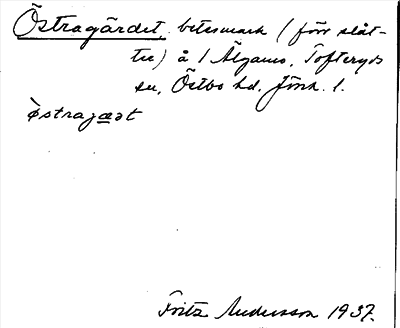 Östragärdet, betesmark (förr slåt-
ter) å 1 Älganäs, Tofteryds
sn, Östbo hd, Jönk. l.
östragæt
Fritz Andersson 1937.